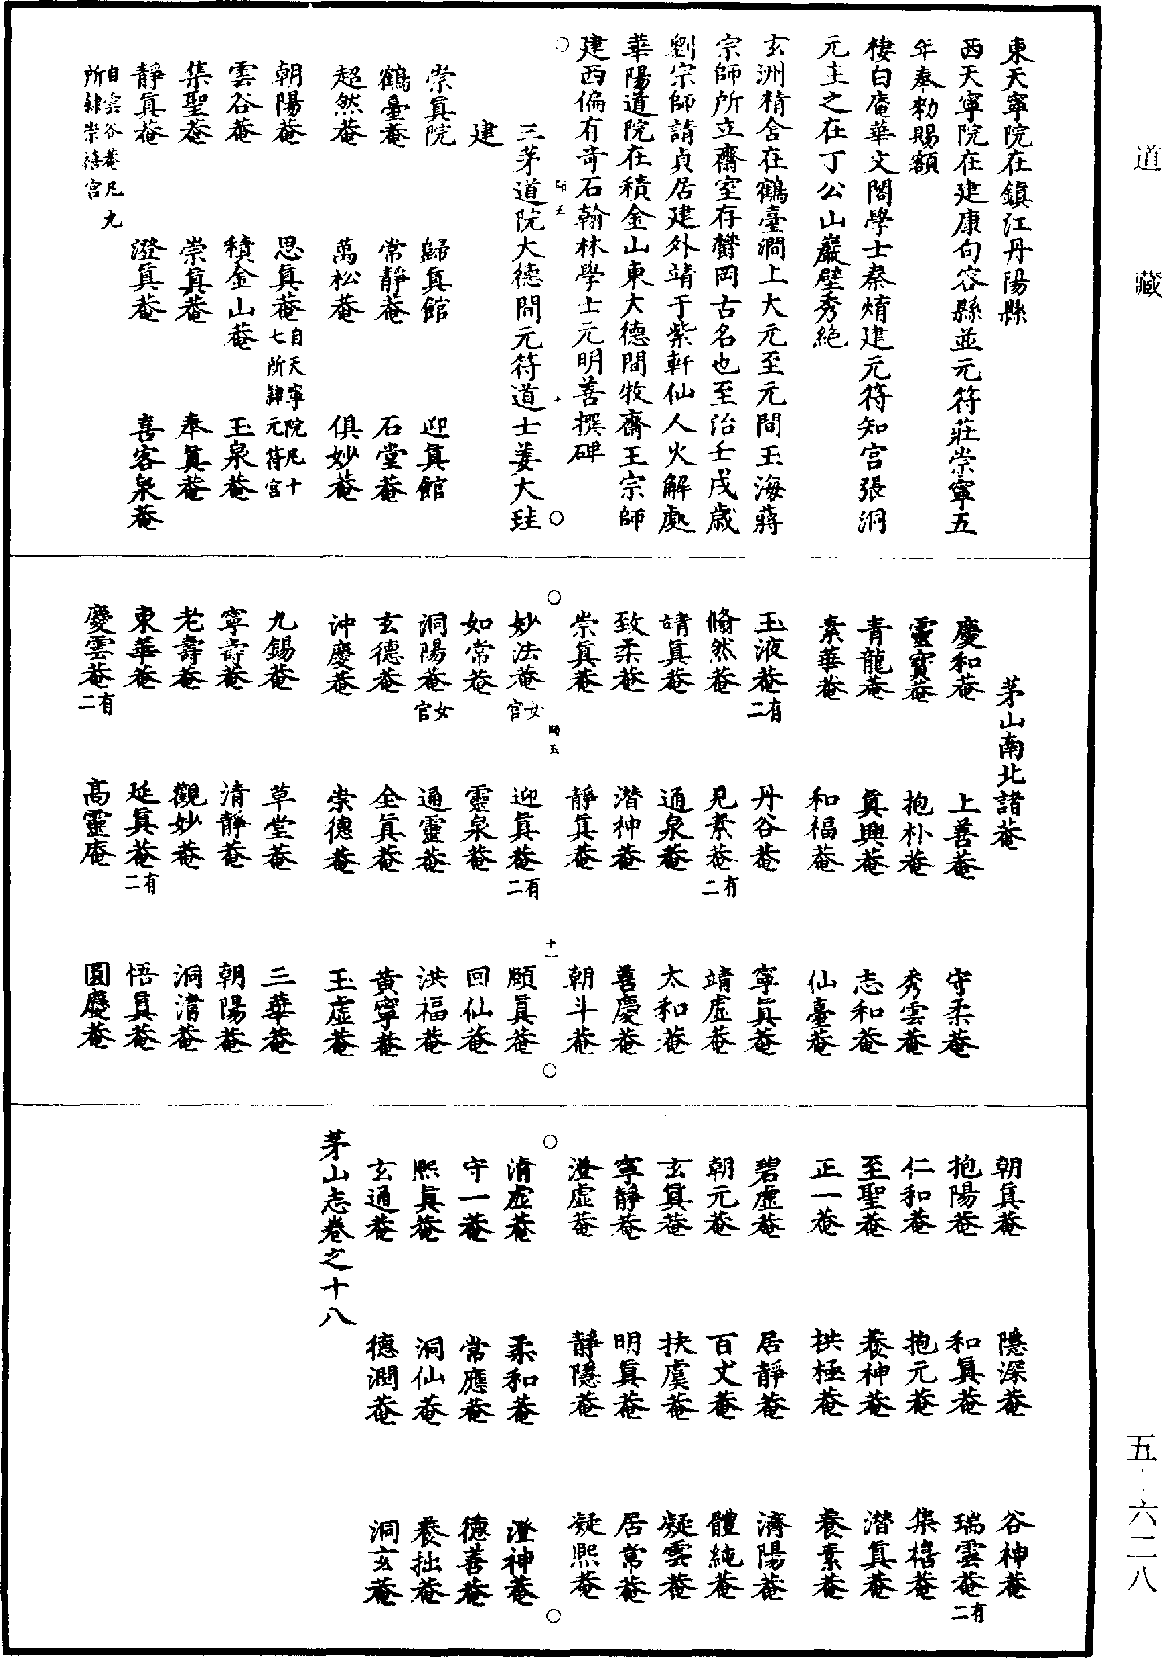 道藏
東天寧院在鎮江丹陽縣
西天寧院在建康句容縣並元符莊崇寧五
年奉勑賜額
棲白庵華文閣學士秦焴建元符知宮張洞
元主之在丁公山巖壁秀絶
玄洲精舍在鶴臺澗上大元至元間玉海蔣
宗師所立齋室存欝岡古名也至治壬戌歲
劉宗師請貞居建外靖于紫軒仙人火解處
華陽道院在積金山東大德間牧齋王宗師
建西偏有奇石翰林學士元明善撰碑
三茅道院大德間元符道士姜大珪
建
崇眞院 歸眞館 迎眞館
鶴臺菴 常靜菴 石堂菴
超然菴 萬松菴 俱妙菴
朝陽菴 思眞菴自天寧院凡十七所隸元符宮
雲谷菴 積金山菴 玉泉菴
集聖菴 崇眞菴 奉眞菴
靜眞菴 澄眞菴 喜客泉菴
自雲谷菴凡九所隸崇禧宮
茅山南北諸菴
慶和菴 上善菴 守柔菴
靈寶菴 抱朴菴 秀雲菴
青龍菴 眞興菴 志和菴
素華菴 和福菴 仙臺菴
玉液菴有二 丹谷菴 寧眞菴
翛然菴 見素菴有二 靖虛菴
靖眞菴 通泉菴 太和菴
致柔菴 潛神菴 善慶菴
崇眞菴 靜眞菴 朝斗菴
妙法菴女官 迎眞菴有二 頤眞菴
如常菴 靈泉菴 回仙菴
洞陽菴女官 通靈菴 洪福菴
玄德菴 全眞菴 黃寧菴
沖慶菴 崇德菴 玉虛菴
九錫菴 草堂菴 三華菴
寧壽菴 清靜菴 朝陽菴
老壽菴 觀妙菴 洞清菴
東華菴 延眞菴有二 悟眞菴
慶雲菴有二 高靈庵 圓應菴
朝眞菴 隱深菴 谷神菴
抱陽菴 和眞菴 瑞雲菴有二
仁和菴 抱元菴 集禧菴
至聖菴 養神菴 潛眞菴
正一菴 拱極菴 養素菴
碧虛菴 居靜菴 濟陽菴
朝元菴 百丈菴 體純菴
玄眞菴 扶虞菴 凝雲菴
寧靜菴 明眞菴 居常菴
澄虛菴 靜隱菴 凝熙菴
清虛菴 柔和菴 澄神菴
守一菴 常應菴 德善菴
熙眞菴 洞仙菴 養拙菴
玄通菴 德潤菴 洞玄菴
茅山志卷之十八
五·六二八